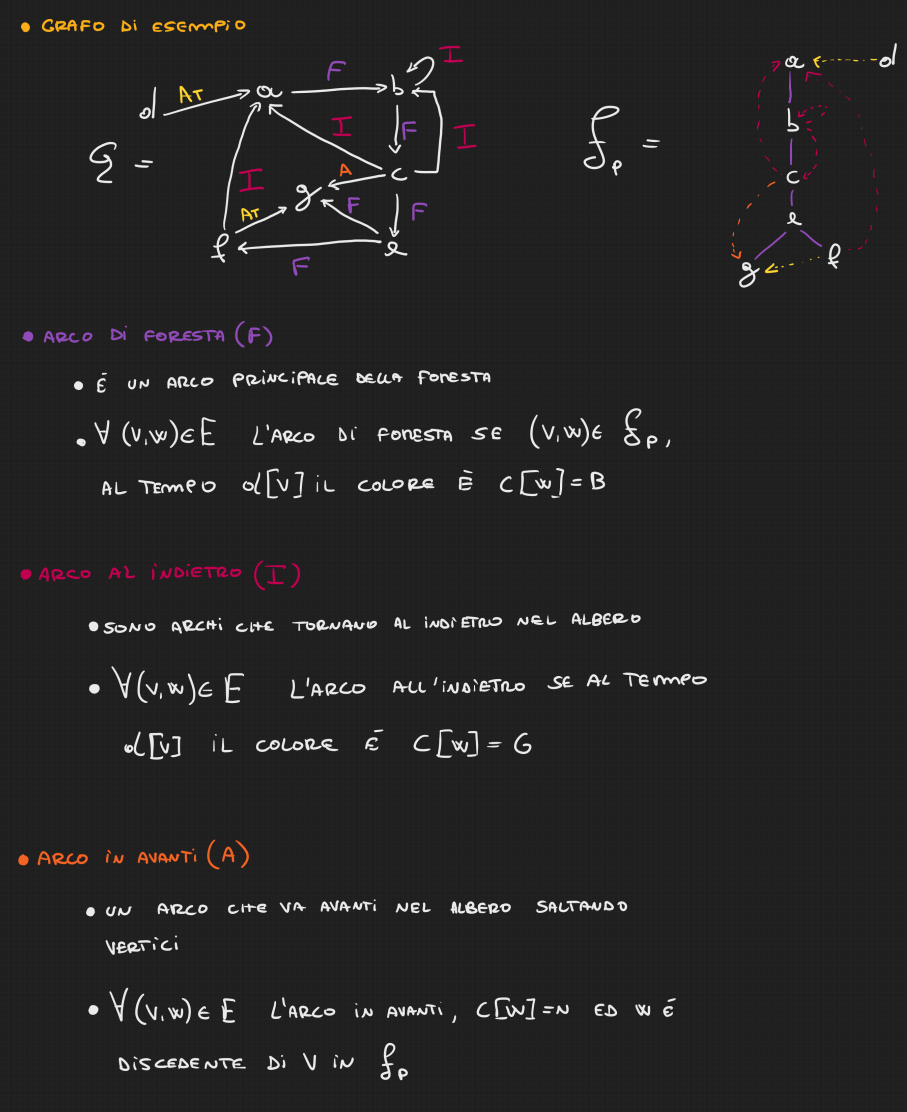 • GRAFO Di ESEMPiO
I
F
AT
a
b
d
I
F
I
G =
A
c
g
I
F
F
AT
f
e
F
f_p =
a
d
b
c
e
g
f
• ARCO Di FORESTA (F)
• É UN ARCO PRiNCiPALE DELLA FORESTA
• ∀ (V,W)∈E L'ARCO Di FORESTA SE (V,W)∈ f_p,
AL TEMPO d[V] iL COLORE È C[W]=B
• ARCO AL iNDiETRO (I)
• SONO ARCHi CHE TORNANO AL iNDiETRO NEL ALBERO
• ∀(V,W)∈ E L'ARCO ALL'iNDiETRO SE AL TEMPO
d[V] iL COLORE É C[W]= G
• ARCO iN AVANTi (A)
• UN ARCO CHE VA AVANTi NEL ALBERO SALTANDO
VERTiCi
• ∀(V,W)∈ E L'ARCO iN AVANTi, C[W]=N ED W É
DiSCEDENTE Di V iN f_p